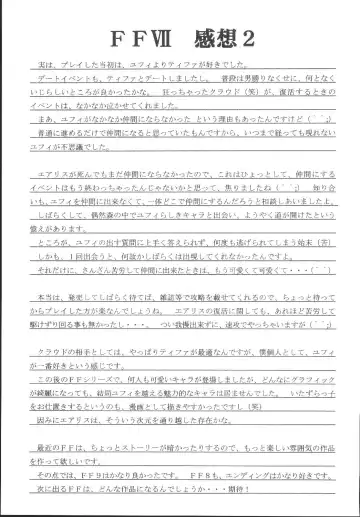 ＦＦⅦ　感想２
実は、プレイした当初は、ユフィよりティファが好きでした。
デートイベントも、ティファとデートしましたし。　普段は男勝りなくせに、何となく
いじらしいところが良かったかな。　狂っちゃったクラウド（笑）が、復活するときの
イベントは、なかなか泣かせてくれました。
まあ、ユフィがなかなか仲間にならなかった　という理由もあったんですけど（＾＾；）
普通に進めるだけで仲間になると思っていたもんですから、いつまで経っても現れない
ユフィが不思議でした。
エアリスが死んでもまだ仲間にならなかったので、これはひょっとして、仲間にする
イベントはもう終わっちゃったんじゃないかと思って、焦りましたね（＾＾；）　知り合
いも、ユフィを仲間に出来なくて、一体どこで仲間にするんだろうと相談しあいましたよ。
しばらくして、偶然森の中でユフィらしきキャラと出会い、ようやく道が開けたという
憶えがあります。
ところが、ユフィの出す質問に上手く答えられず、何度も逃げられてしまう始末（苦）
しかも、１回出会うと、何故かしばらくは出現してくれなかったんですよ。
それだけに、さんざん苦労して仲間に出来たときは、もう可愛くて可愛くて・・・（笑）
本当は、発売してしばらく待てば、雑誌等で攻略を載せてくれるので、ちょっと待って
からプレイした方が楽なんでしょうね。　エアリスの復活に関しても、あれほど苦労して
駆けずり回る事も無かったし・・・。　つい我慢出来ずに、速攻でやっちゃいますが（＾＾；）
クラウドの相手としては、やっぱりティファが最適なんですが、僕個人として、ユフィ
が一番好きという感じです。
この後のＦＦシリーズで、何人も可愛いキャラが登場しましたが、どんなにグラフィック
が綺麗になっても、結局ユフィを越える魅力的なキャラは居ませんでした。　いたずらっ子
をお仕置きするというのも、漫画として描きやすかったですし（笑）
因みにエアリスは、そういう次元を通り越した存在かな。
最近のＦＦは、ちょっとストーリーが暗かったりするので、もっと楽しい雰囲気の作品
を作って欲しいです。
その点では、ＦＦ９はかなり良かったです。　ＦＦ８も、エンディングはかなり好きです。
次に出るＦＦは、どんな作品になるんでしょうか・・・期待！